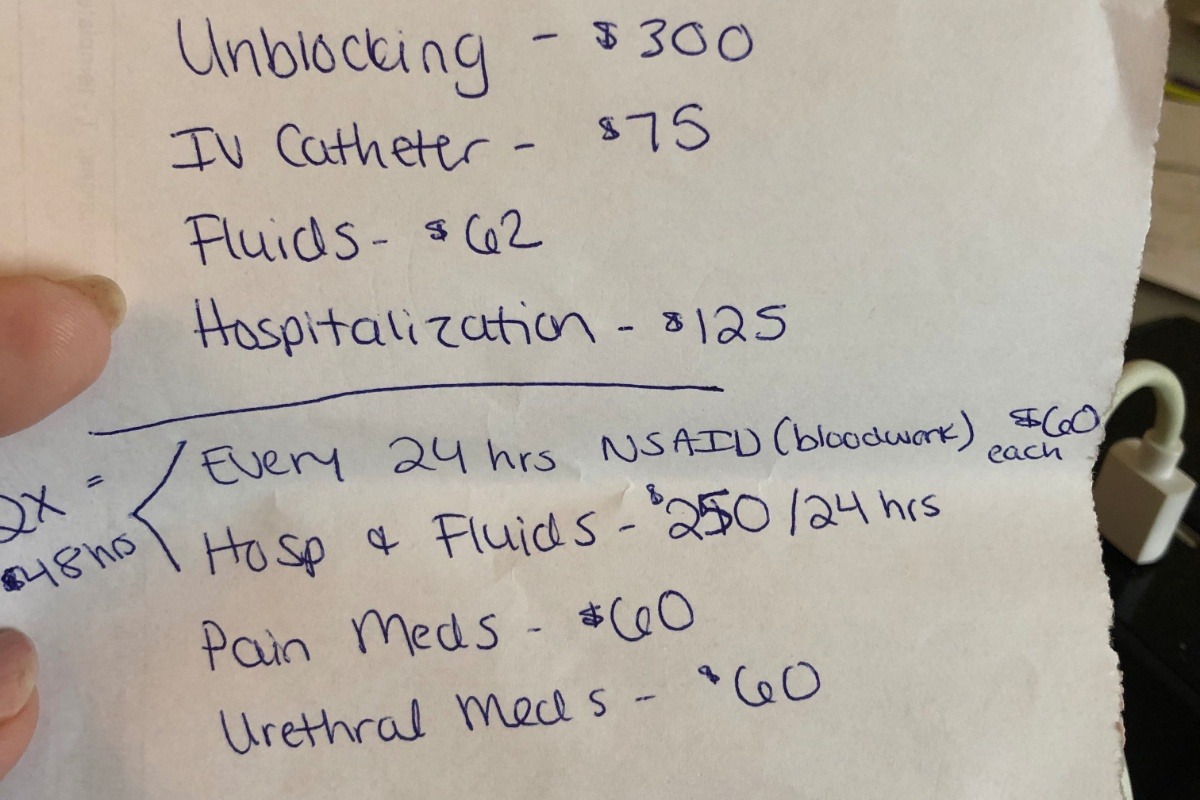 Unblocking - $300
IV Catheter - $75
Fluids - $62
Hospitalization - $125
Every 24 hrs NSAID (bloodwork) $60 each
2x =
48 hrs
Hosp & Fluids - $250 / 24 hrs
Pain Meds - $60
Urethral Meds - $60